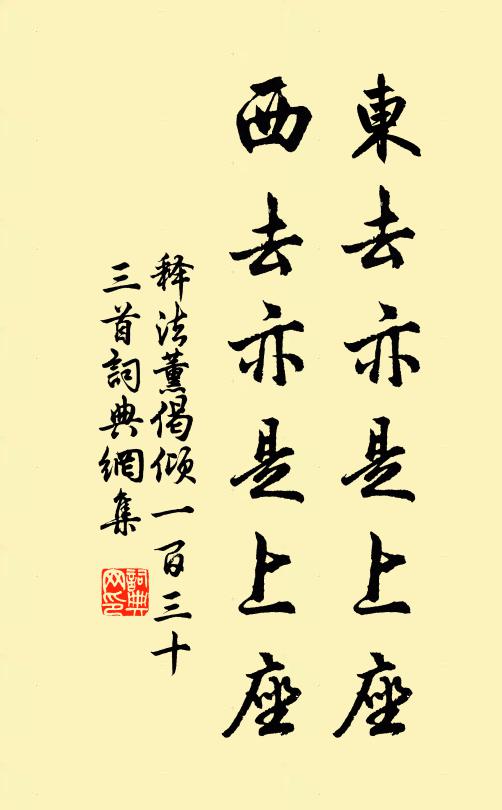 東去亦是上座
西去亦是上座
释法薰偈倾一百三十
三首詞典網集
詞典
网印